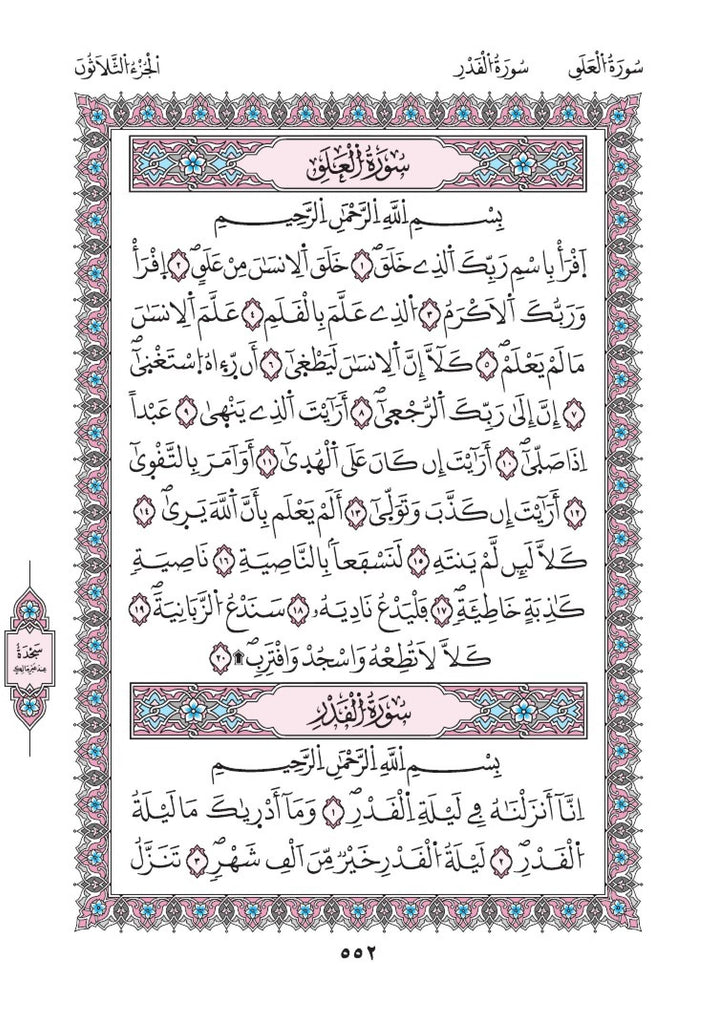 سُورَةُ الْعَلَقِ
سُورَةُ الْقَدْرِ
الْجُزْءُ الثَّلَاثُونَ
سُورَةُ الْعَلَقِ
بِسْمِ اللَّهِ الرَّحْمَٰنِ الرَّحِيمِ
اِقْرَأْ بِاسْمِ رَبِّكَ الَّذِے خَلَقَۖ ١ خَلَقَ اَلِانسَٰنَ مِنْ عَلَقٍۖ ٢ اِقْرَأْ
وَرَبُّكَ اَلَاكْرَمُ ٣ اُلذِے عَلَّمَ بِالْقَلَمِ ٤ عَلَّمَ اَلِانسَٰنَ
مَا لَمْ يَعْلَمْۖ ٥ كَلَّآ إِنَّ اَلِانسَٰنَ لَيَطْغ۪ىٰٓ ٦ أَن رّء۪اهُ اُسْتَغْن۪ىٰٓۖ
٧ إِنَّ إِلَىٰ رَبِّكَ اَلرُّجْع۪ىٰٓۖ ٨ أَرَٰٓيْتَ اَلذِے يَنْه۪ىٰ ٩ عَبْداً
اِذَا صَلّ۪ىٰٓۖ ١٠ أَرَٰٓيْتَ إِن كَانَ عَلَى اَلْهُد۪ىٰٓ ١١ أَوَ اَمَرَ بِالتَّقْو۪ىٰٓ
١٢ أَرَٰٓيْتَ إِن كَذَّبَ وَتَوَلّ۪ىٰٓ ١٣ أَلَمْ يَعْلَم بِأَنَّ اَللَّهَ يَر۪ىٰۖ ١٤
كَلَّا لَئِن لَّمْ يَنتَهِ ١٥ لَنَسْفَعاَۢ بِالنَّاصِيَةِ ١٦ نَاصِيَةٖ
كَٰذِبَةٍ خَاطِئَةٖۖ ١٧ فَلْيَدْعُ نَادِيَهُۥ ١٨ سَنَدْعُ اُلزَّبَانِيَةَۖ ١٩
كَلَّا لَا تُطِعْهُ وَاسْجُدْ وَاقْتَرِبۖ ۩ ٢٠
سَجْدَة
سُورَةُ الْقَدْرِ
بِسْمِ اللَّهِ الرَّحْمَٰنِ الرَّحِيمِ
اِنَّآ أَنزَلْنَٰهُ فِے لَيْلَةِ اِلْقَدْرِۖ ١ وَمَآ أَدْر۪يٰكَ مَا لَيْلَةُ
اُلْقَدْرِۖ ٢ لَيْلَةُ اُلْقَدْرِ خَيْرٌ مِّنَ اَلْفِ شَهْرٖۖ ٣ تَنَزَّلُ
٥٥٢